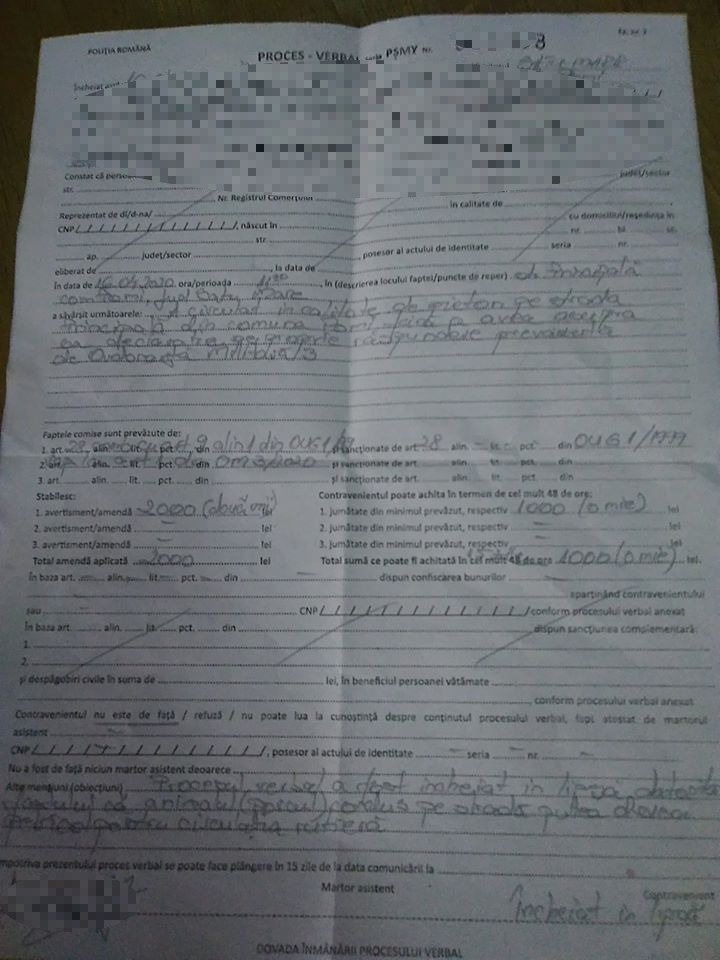 POLIȚIA ROMÂNĂ
PROCES - VERBAL seria PSMY Nr. 8
SATU MARE
Încheiat
Constat că
județ/sector
str.
Nr. Registrul Comerțului
Reprezentat de dl/d-na/ în calitate de
CNP / / / / / / / / / / / / /, născut în cu domiciliul/reședința în
str. nr. bl. sc.
ap. județ/sector , posesor al actului de identitate seria nr.
eliberat de , la data de
În data de 16.04.2020 ora/perioada , în (descrierea locului faptei/puncte de reper) str. Principală
com. jud. Satu Mare
a săvârșit următoarele: A circulat în calitate de pieton pe strada
Principală din comuna fără a avea asupra
sa declarația pe propria răspundere prevăzută
de Ordonanța Militară 3
Faptele comise sunt prevăzute de:
1. art. alin. lit. pct. din OUG 1/99 și sancționate de art. 28 alin. – lit. – pct. din OUG 1/1999
2. art. alin. lit. pct. din OM 3/2020 și sancționate de art. alin. lit. pct. din
3. art. alin. lit. pct. din și sancționate de art. alin. lit. pct. din
Stabilesc: Contravenientul poate achita în termen de cel mult 48 de ore:
1. avertisment/amendă 2000 (două mii) lei 1. jumătate din minimul prevăzut, respectiv 1000 (o mie) lei
2. avertisment/amendă – lei 2. jumătate din minimul prevăzut, respectiv – lei
3. avertisment/amendă – lei 3. jumătate din minimul prevăzut, respectiv – lei
Total amendă aplicată 2000 lei Total sumă ce poate fi achitată în cel mult 48 de ore 1000 (o mie) lei.
În baza art. alin. lit. pct. din – dispun confiscarea bunurilor –
aparținând contravenientului
sau – CNP / / / / / / / / / / / / / conform procesului verbal anexat
În baza art. alin. lit. pct. din dispun sancțiunea complementară:
1.
2.
și despăgubiri civile în suma de lei, în beneficiul persoanei vătămate
, conform procesului verbal anexat
Contravenientul nu este de față / refuză / nu poate lua la cunoștință despre conținutul procesului verbal, fapt atestat de martorul
asistent –
CNP / / / / / / / / / / / / /, posesor al actului de identitate – seria – nr. –
Nu a fost de față niciun martor asistent deoarece
Alte mențiuni (obiecțiuni) Procesul verbal a fost încheiat în lipsă datorită
faptului că animalul (porcul) condus pe stradă putea deveni
pericol pentru circulația rutieră
Împotriva prezentului proces verbal se poate face plângere în 15 zile de la data comunicării la
Martor asistent Contravenient
Încheiat în lipsă
DOVADA ÎNMÂNĂRII PROCESULUI VERBAL